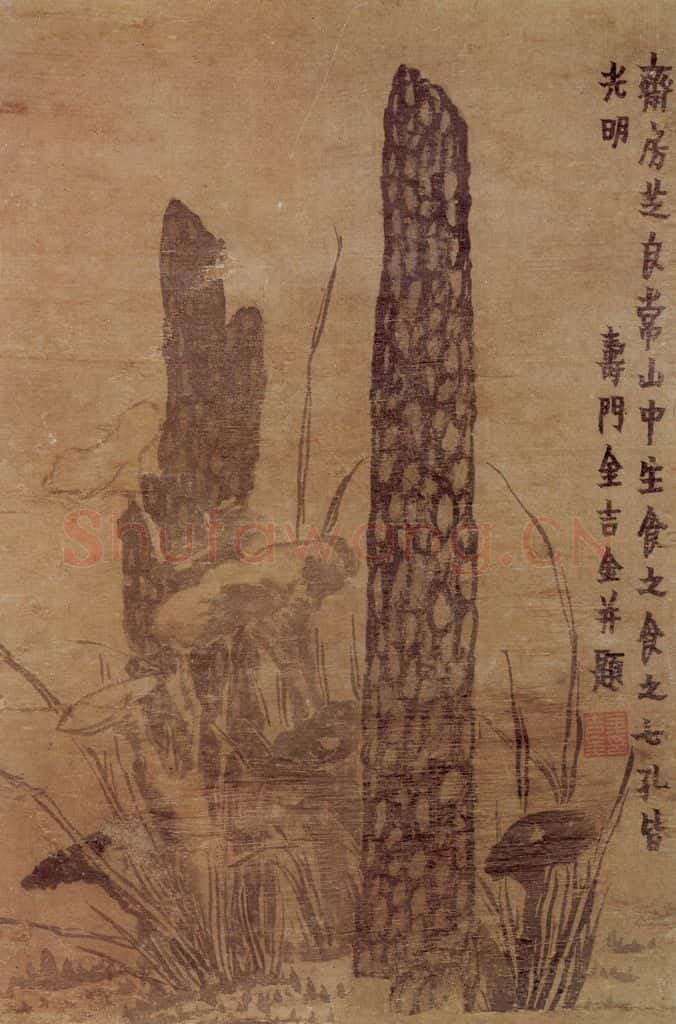 齋房芝良常山中生食之食之七孔皆
光明
壽門金吉金并題
Shufawang.CN